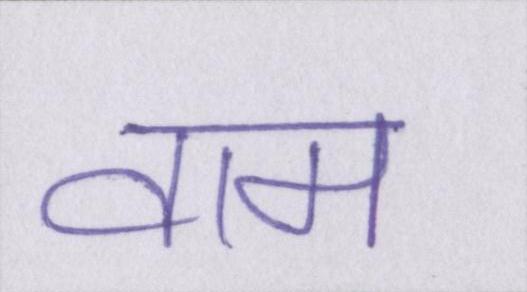 वाम